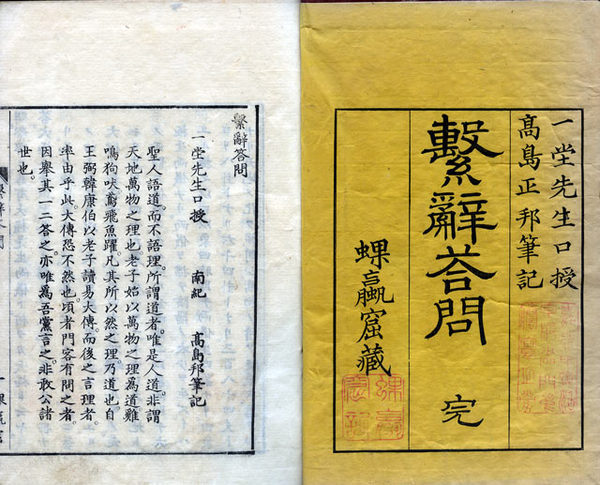 一堂先生口授
髙島正邦筆記
繫辭荅問 完
蜾蠃窟藏
繫辭答問
一堂先生口授 南紀 髙島邦筆記
聖人語道而不語理。所謂道者。唯是人道。非謂
天地萬物之理也老子始以萬物之理為道雞
鳴狗吠鳶飛魚躍。凡其所以然之理乃道也。自
王弼韓康伯以老子讀易大傳而後之言理者。
率由乎此。大傳恐不然也。頃者門客有問之者。
因舉其一二答之亦唯為吾黨言之非敢公諸
世也。